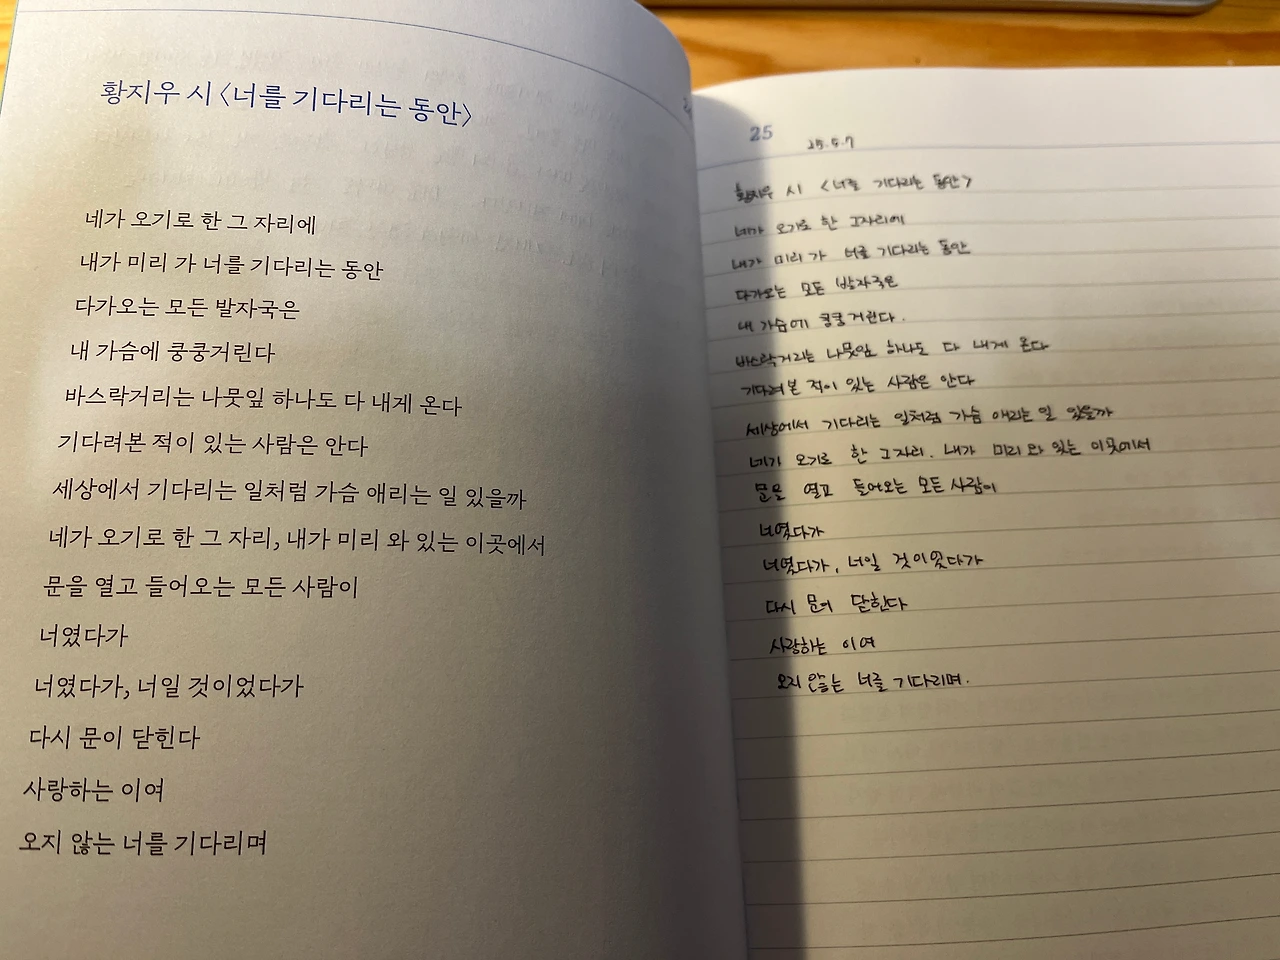 황지우 시 〈너를 기다리는 동안〉
네가 오기로 한 그 자리에
내가 미리 가 너를 기다리는 동안
다가오는 모든 발자국은
내 가슴에 쿵쿵거린다
바스락거리는 나뭇잎 하나도 다 내게 온다
기다려본 적이 있는 사람은 안다
세상에서 기다리는 일처럼 가슴 애리는 일 있을까
네가 오기로 한 그 자리, 내가 미리 와 있는 이곳에서
문을 열고 들어오는 모든 사람이
너였다가
너였다가, 너일 것이었다가
다시 문이 닫힌다
사랑하는 이여
오지 않는 너를 기다리며
25
황지우 시 <너를 기다리는 동안>
네가 오기로 한 그자리에
내가 미리 가 너를 기다리는 동안
다가오는 모든 발자국은
내 가슴에 쿵쿵거린다.
바스락거리는 나뭇잎 하나도 다 내게 온다
기다려본 적이 있는 사람은 안다
세상에서 기다리는 일처럼 가슴 애리는 일 있을까
네가 오기로 한 그자리. 내가 미리 와 있는 이곳에서
문을 열고 들어오는 모든 사람이
너였다가
너였다가, 너일 것이었다가
다시 문이 닫힌다
사랑하는 이여
오지 않는 너를 기다리며.